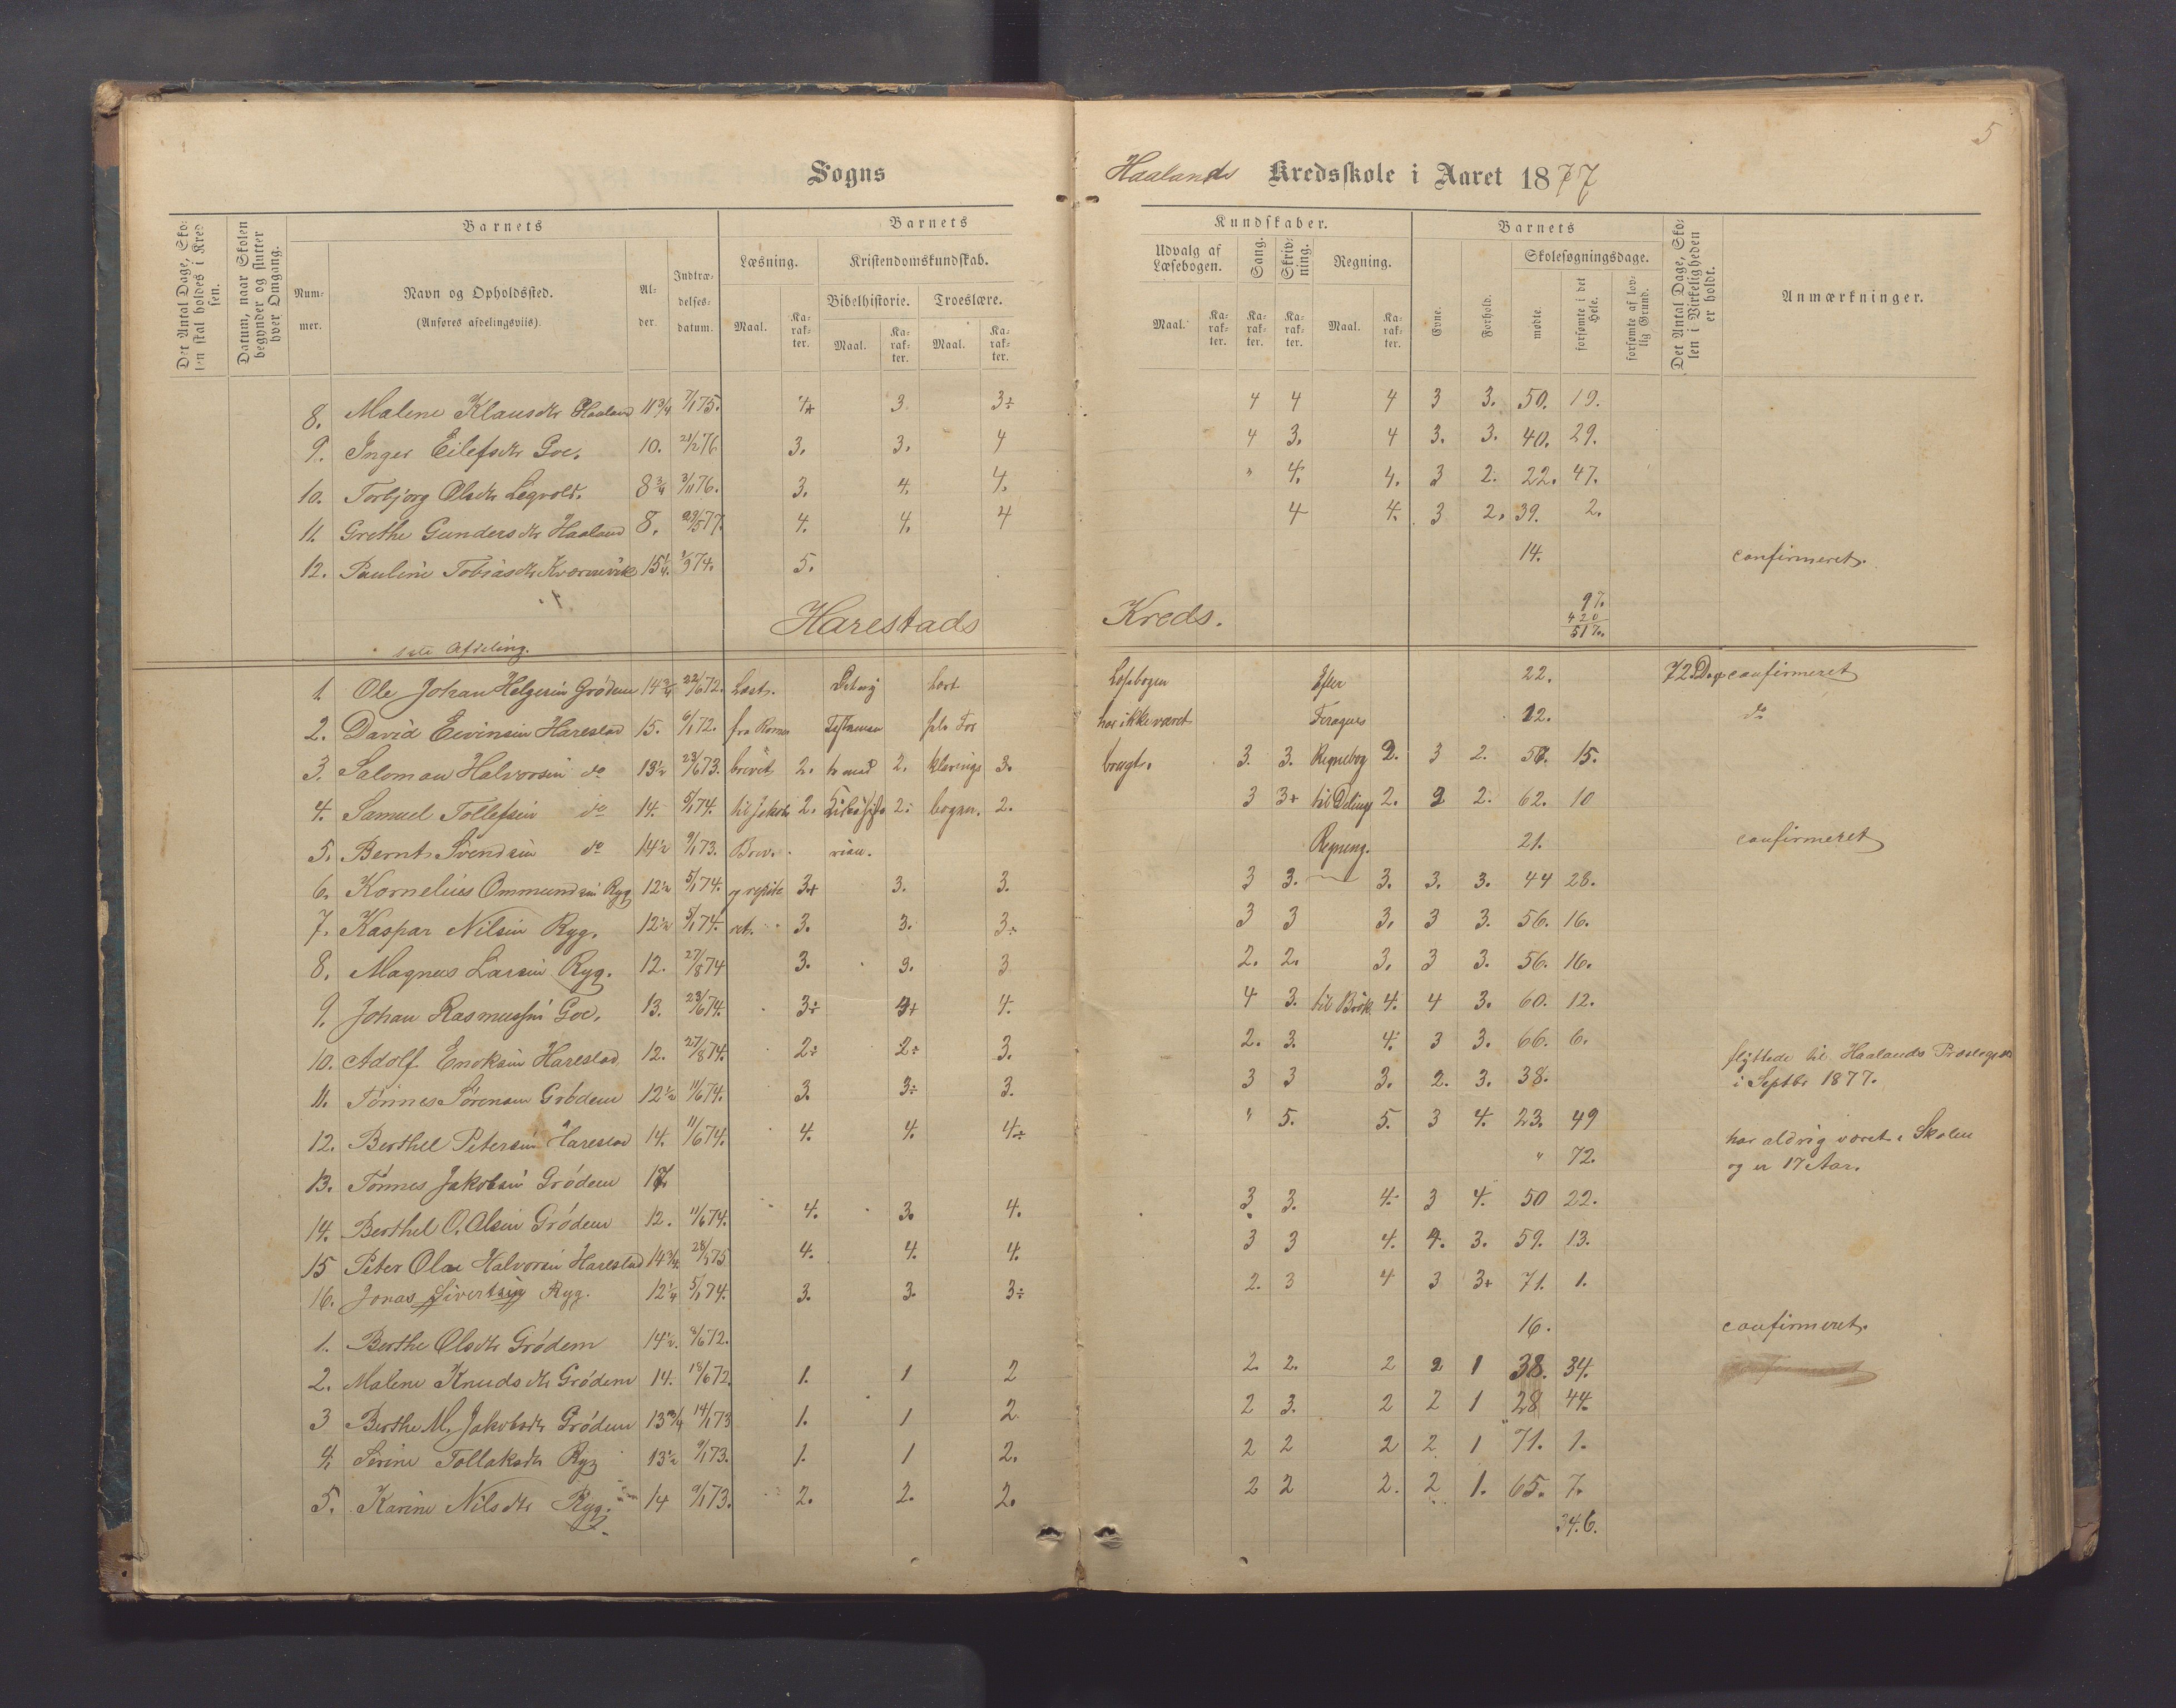 5
Sogns Haalands Kredsskole i Aaret 1877
Det Antal Dage, Skolen skal holdes i Kredsen.
Datum, naar Skolen begynder og slutter hver Omgang.
Barnets
Nummer.
Navn og Opholdssted.
(Anføres afdelingsviis).
Alder.
Indtrædelsesdatum.
Barnets Kundskaber.
Læsning.
Kristendomskundskab.
Bibelhistorie.
Troeslære.
Maal. Karakter. Maal. Karakter. Maal. Karakter.
Udvalg af Læsebogen.
Sang.
Skrivning.
Regning.
Maal. Karakter. Karakter. Karakter. Maal. Karakter.
Barnets
Evne.
Forhold.
Skolesøgningsdage.
mødte.
forsømte i det Hele.
forsømte af lovlig Grund.
Det Antal Dage, Skolen i Virkeligheden er holdt.
Anmærkninger.
8. Malene Klausdtr Haaland 11 3/4 7/1 75. 4+ 3 3÷ 4 4 4 3 3. 50. 19.
9. Inger Eilefsdtr Goe. 10. 21/2 76 3. 3. 4 4 3. 4 3. 3. 40. 29.
10. Torbjorg Olsdtr Legvold. 8 3/4 3/11 76. 3. 4. 4. " 4. 4. 3 2. 22. 47.
11. Grethe Gundersdtr Haaland 8. 29/5 77. 4. 4. 4 4 4. 3 2. 39. 2.
12. Pauline Tobiasdtr Kvernevik 15 1/4. 1/9 74. 5. 14. confirmeret.
97.
420
517.
Harestads Kreds.
Afdeling.
1. Ole Johan Helgesen Grødem 14 3/4 22/6 72. Læst. lært Læsebogen Efter 22. 72 Dage confirmeret
2. David Eivinsen Harestad 15. 6/1 72. fra Romer For har ikke været 12. do
3. Saloman Halvorsen do 13 1/2 23/6 73. brevet 2. 2. klarings 3. brugt. 3. 3. Regnebog 2. 3 2. 57. 15.
4. Samuel Tollefsen do 14. 5/1 74. til Jakobs 2. 2. bogen. 2. 3 3+ til Delings 2. 2 2. 62. 10
5. Bernt Svendsen do 14 1/2 9/1 73. Brev. rien. Regning. 21. confirmeret
6. Kornelius Ommundsen Ryg 12 1/2 5/1 74. og repete 3+ 3. 3. 3 3. 3. 3. 3. 44 28.
7. Kaspar Nilsen Ryg. 12 1/2 5/1 74. ret. 3. 3. 3÷ 3 3 3. 3 3. 56. 16.
8. Magnus Larsen Ryg. 12. 27/8 74 3. 3. 3 2. 2. 3. 3 3. 56. 16.
9. Johan Rasmussen Goe. 13. 23/6 74. 3÷ 3+ 4. 4 3. til Brøk 4. 4 3. 60. 12.
10. Adolf Enoksen Harestad 12. 27/8 74. 2÷ 2÷ 3. 2. 3. 4. 3 3. 66. 6.
11. Tønnes Sørensen Grødem 12 1/2 11/6 74. 3. 3÷ 3. 3 3 3. 2. 3. 38. flyttede til Haalands Præstegjæld
i Septbr 1877.
12. Berthel Petersen Harestad 14. 11/6 74. 4. 4. 4÷ " 5. 5. 3 4. 23. 49
13. Tønnes Jakobsen Grødem 17. " 72. har aldrig været i Skolen
og er 17 Aar.
14. Berthel O. Olsen Grødem 12. 11/6 74. 4. 3. 4. 3 3. 4. 3 4. 50 22.
15 Peter Olai Halvorsen Harestad 14 3/4. 28/1 75 4. 4. 4. 3 3 4. 4. 3. 59. 13.
16. Jonas Sivertsen Ryg. 12 1/4 5/1 74. 3. 3. 3÷ 2. 3 4 3 3+ 71. 1.
1. Berthe Olsdtr Grødem 14 1/2. 8/6 72. 16. confirmeret.
2. Malene Knudsdtr Grødem 14. 18/6 72. 1. 1 2 2. 2. 2 2 1 38. 34.
3 Berthe M. Jakobsdtr Grødem 13 3/4 14/1 73 1. 1 2 2 3. 2 2 1 28 44.
4. Serine Tollaksdtr Ryg 13 1/2 9/1 73. 1. 1 2. 2 2 2 2 1 71. 1.
5. Karine Nilsdtr Ryg. 14 9/1 73. 2. 2. 2. 2 2 2. 2 1. 65. 7.
346.